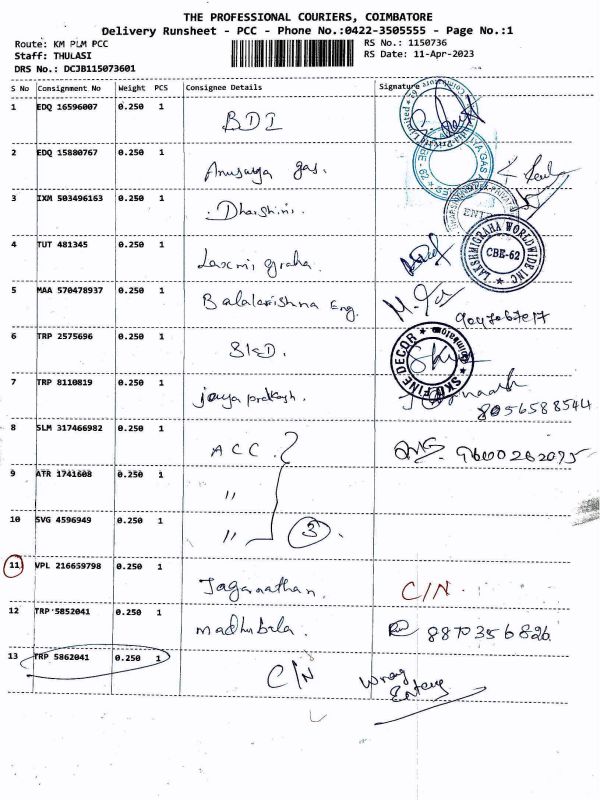 THE PROFESSIONAL COURIERS, COIMBATORE
Delivery Runsheet - PCC - Phone No.:0422-3505555 - Page No.:1
Route: KM PLM PCC
RS No.: 1150736
Staff: THULASI
RS Date: 11-Apr-2023
DRS No.: DCJB115073601
S No Consignment No Weight PCS Consignee Details Signature
1 EDQ 16596007 0.250 1 BDI
2 EDQ 15880767 0.250 1 Anusuya gas.
3 IXM 503496163 0.250 1 Dharshini.
4 TUT 481345 0.250 1 Laxmi graha.
LAKSHMIGRAHA WORLDWIDE INC
CBE-62
5 MAA 570478937 0.250 1 Balakrishna Eng.
6 TRP 2575696 0.250 1
SKID FINE DECOR
7 TRP 8110819 0.250 1 jaya prakash. 8056588544
8 SLM 317466982 0.250 1 ACC. 9600262075
9 ATR 1741608 0.250 1 "
10 SVG 4596949 0.250 1 " 3.
11 VPL 216659798 0.250 1 Jaganathan. C/N.
12 TRP 5852041 0.250 1 madhubala. 8870356826
13 TRP 5862041 0.250 1 C/N Wrong Entry